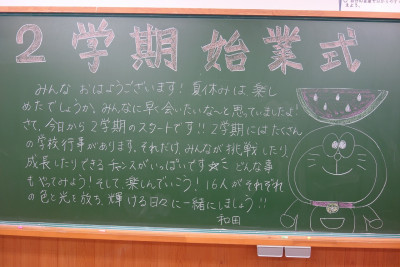 2学期始業式
みんなおはようございます！夏休みは楽し
めたでしょうか。みんなに早く会いたいな〜と思っていましたよ！
さて、今日から2学期のスタートです!!2学期にはたくさん
の学校行事があります。それだけ、みんなが挑戦したり、
成長したりできるチャンスがいっぱいです☆ どんな事
もやってみよう！そして楽しんでいこう！16人がそれぞれ
の色と光を放ち、輝ける日々に一緒にしましょう!!
和田